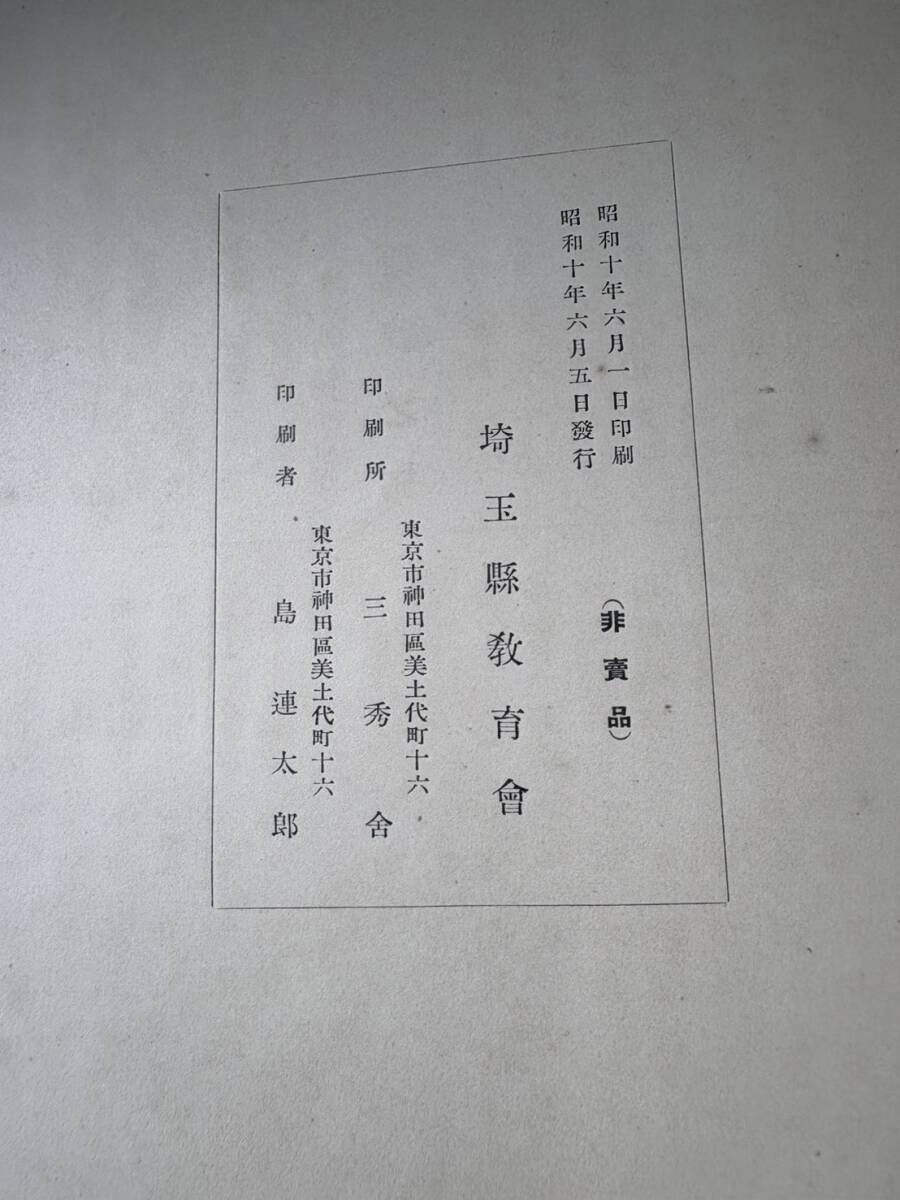 昭和十年六月一日印刷
昭和十年六月五日發行
（非賣品）
埼玉縣教育會
東京市神田區美土代町十六
印刷所 三秀舍
東京市神田區美土代町十六
印刷者 島連太郎